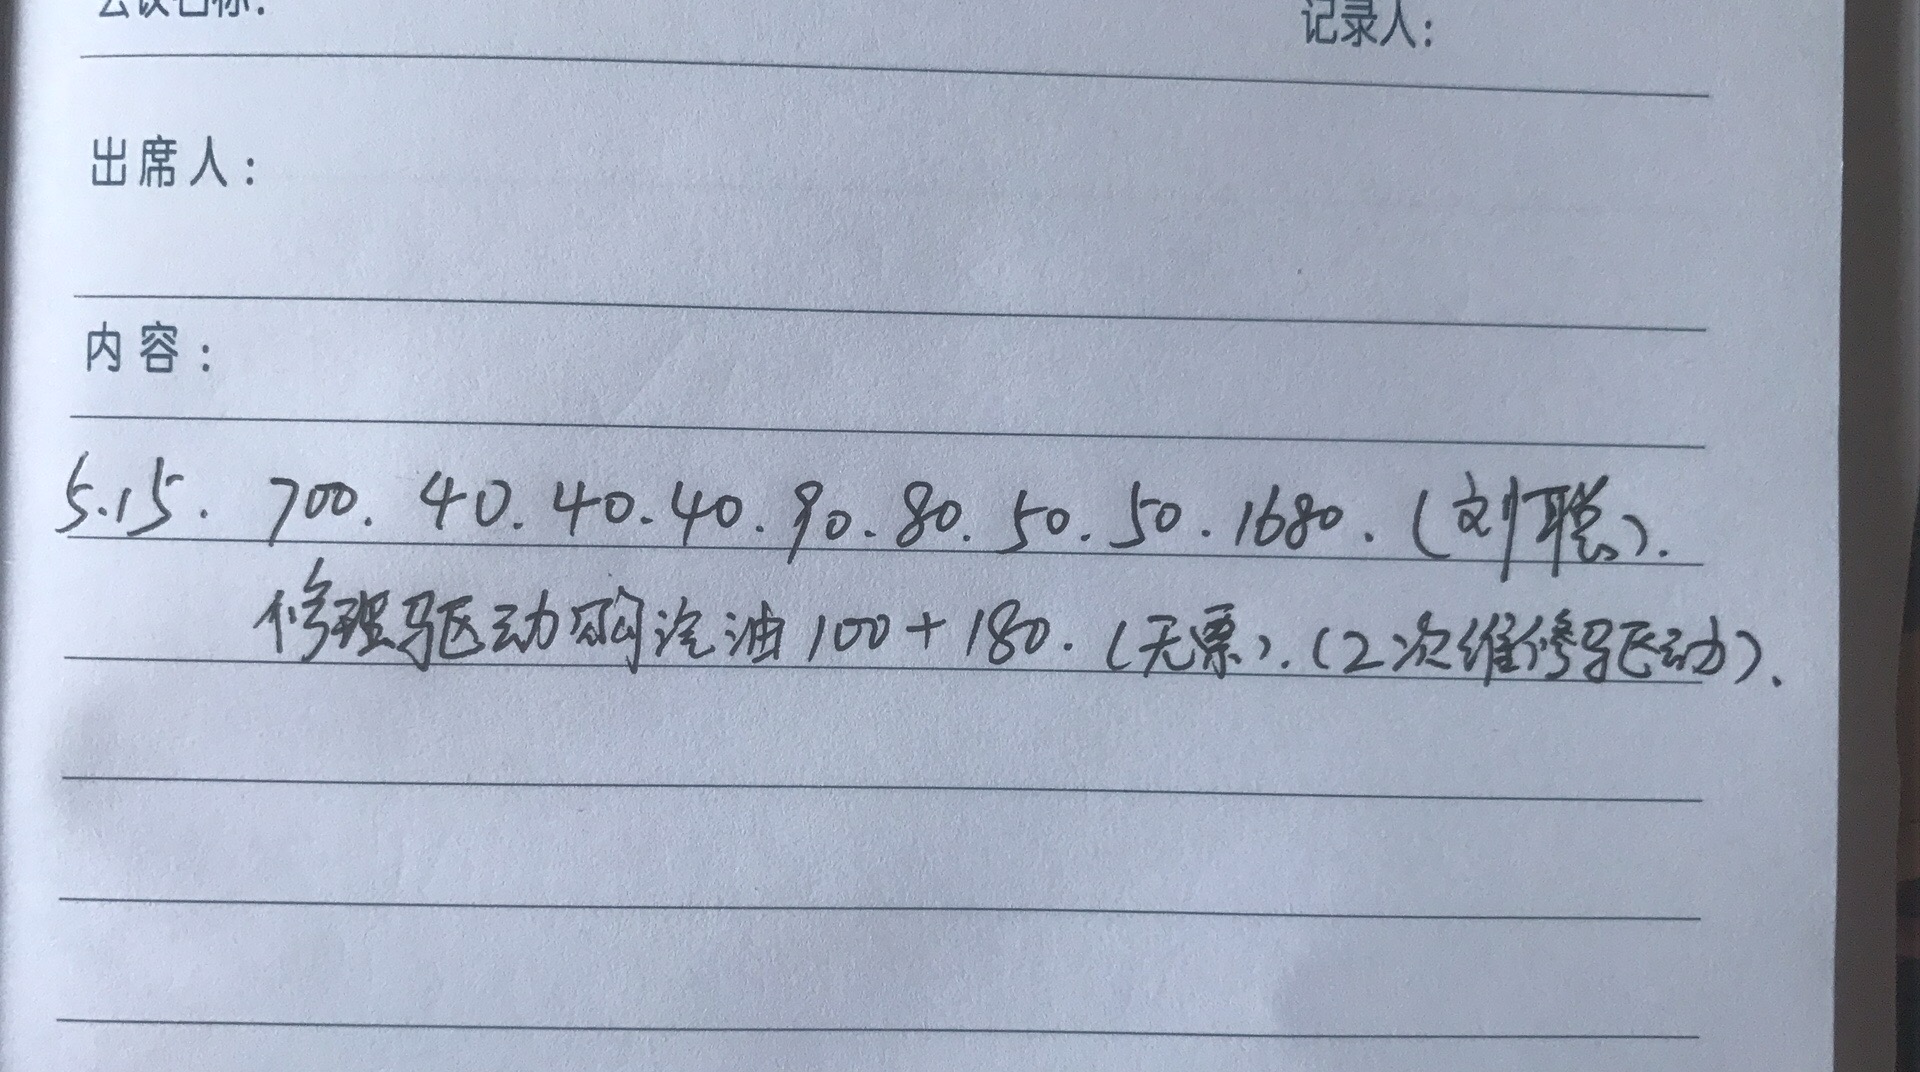 会议名称:
记录人:
出席人:
内容:
5.15. 700. 40. 40. 40. 90. 80. 50. 50. 1680. (刘聪).
修理驱动购汽油100+180. (无票). (2次维修驱动).